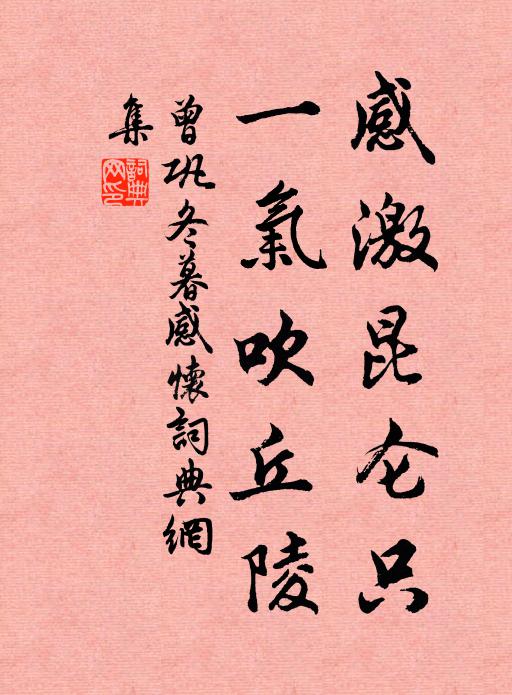 感激昆仑只
一氣吹丘陵
曾巩冬暮感懷詞典網
集
詞典網印